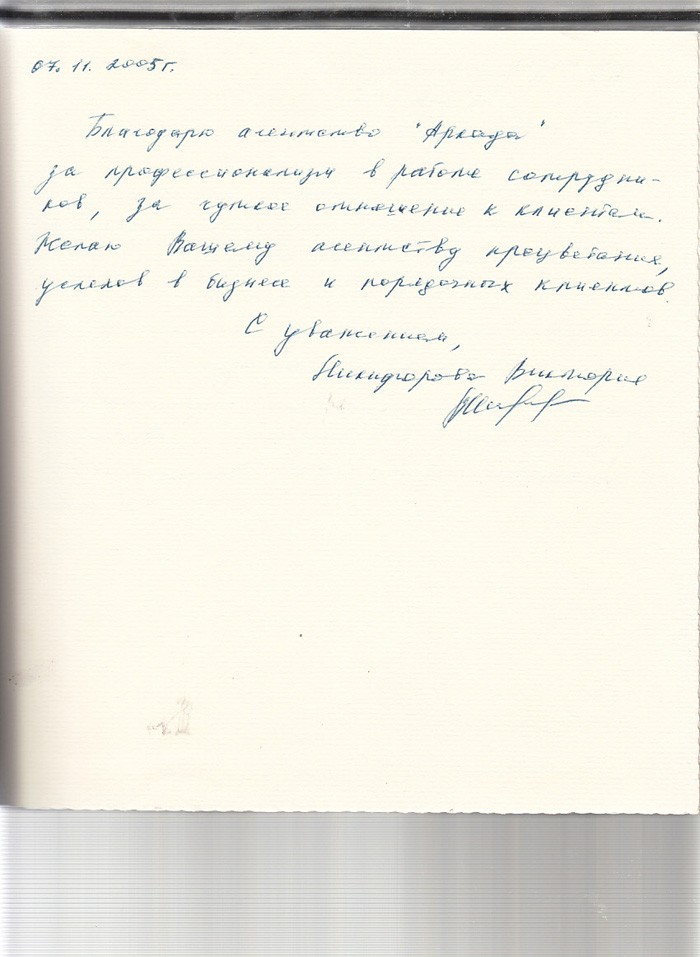 07.11.2005г.
Благодарю агентство "Аркада"
за профессионализм в работе сотрудни-
ков, за чуткое отношение к клиентам.
Желаю Вашему агентству процветания,
успехов в бизнесе и порядочных клиентов.
С уважением,
Никифорова Виктория